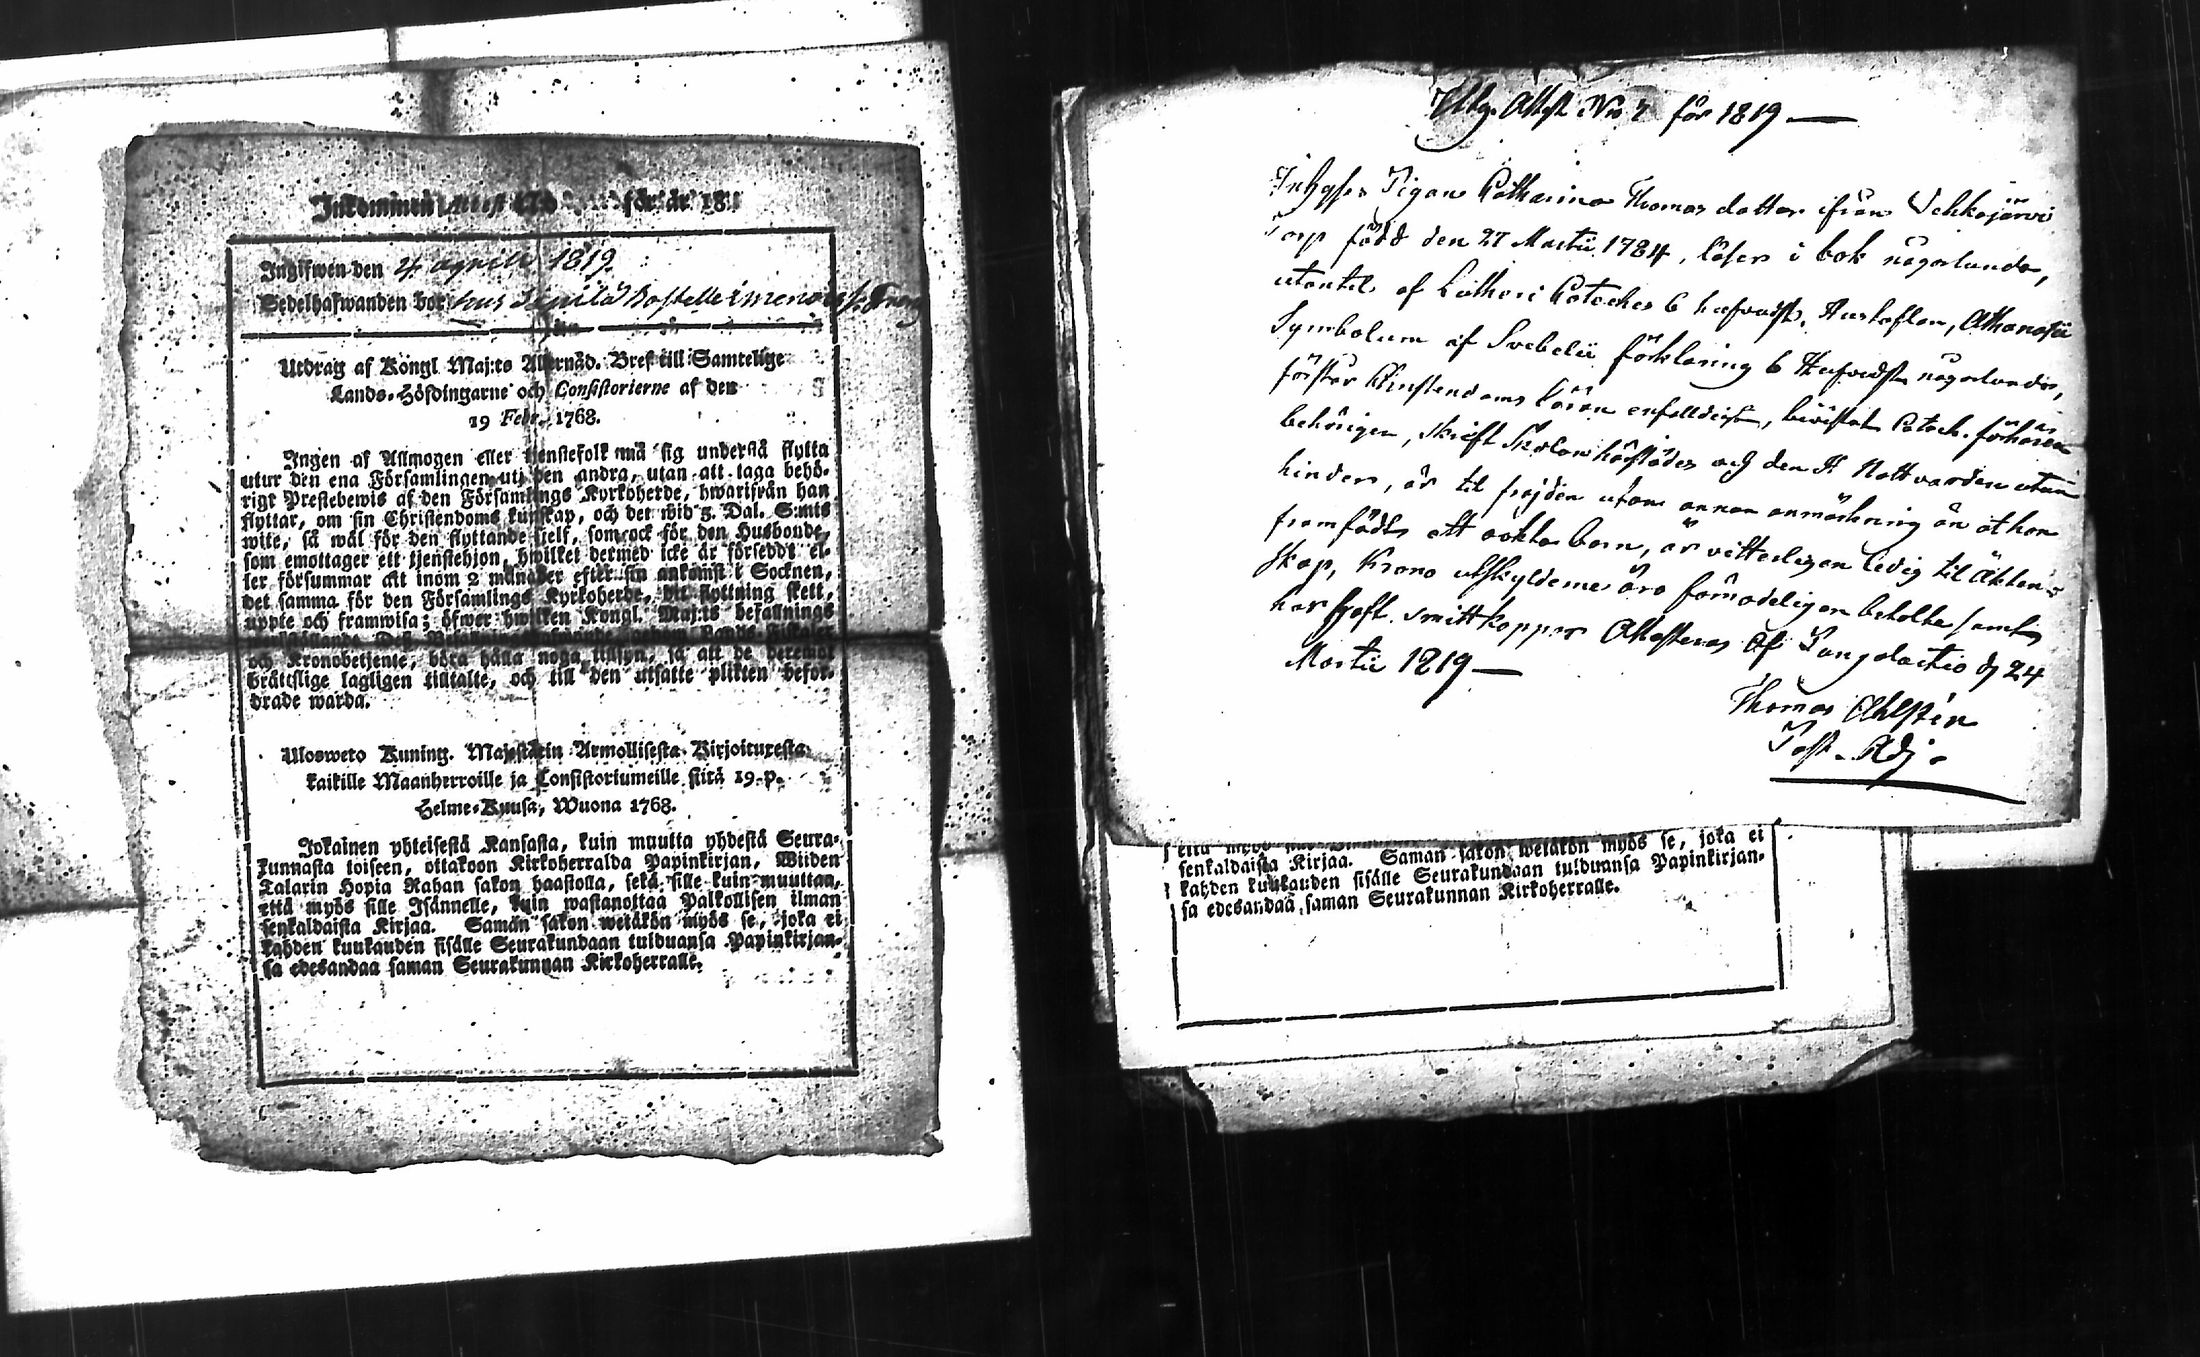 Inkommen Attest N:o för år 18
Ingifwen den 4 aprill 1819.
Sedelhafwanden bor hos
Utdrag af Kongl Maj:ts Allernåd. Bref till Samtelige
Lands-Höfdingarne och Consistorierne af den
19 Febr. 1768.
Ingen af Allmogen eller tjenstefolk må sig understå flytta
utur den ena Församlingen uti den andra, utan att taga behö-
rigt Prestebewis af den Församlings Kyrkoherde, hwarifrån han
flyttar, om sin Christendoms kunskap, och det wid 5. Dal. S:mts
wite, så wäl för den flyttande sjelf, som ock för den Husbonde,
som emottager ett tjenstehjon, hwilket dermed icke är förseddt el-
ler försummar att inom 2 månader efter sin ankomst i Socknen,
det samma för den Församlings Kyrkoherde, dit flyttning skett,
uppte och framwisa; öfwer hwilken Kongl. Maj:ts befallnings
och Kronobetjente, böra hålla noga tillsyn, så att de deremot
bråttslige lagligen tilltalte, och till den utsatte plikten befor-
drade warda.
Uloswето Kuning. Majestätin Armollisesta Kirjoituresta
kaikille Maanherroille ja Consistoriumeille siitä 19 p.
Helme-Kuusa, Wuona 1768.
Jokainen yhteisestä Kansasta, kuin muutta yhdestä Seura-
kunnasta toiseen, ottakoon Kirkoherralda Papinkirjan, Wiiden
Talarin Hopia Rahan sakon haastolla, sekä sille kuin muuttan,
että myös sille Isännelle, kuin wastanottaa Palkollisen ilman
senkaldaista Kirjaa. Saman sakon wetäkön myös se, joka ei
kahden kuukauden sisälle Seurakundaan tulduansa Papinkirjan-
sa edesandaa saman Seurakunnan Kirkoherralle.
Utg. Attest No 7 för 1819
Inhyses Pigan Catharina Thomas dotter ifrån Vehkajärvi
Torp född den 27 Martii 1784, läser i bok någorlunda,
utantil af Lutheri Cateches 6 hufvudst. Hustaflan, Athanasii
Symbolum af Svebelii förklaring 6 Hufvudst någorlunda,
förstår Christendoms läran enfalldeligen, bivistat Catech. förhören
behörigen, Skrift Skolan och den H. Nattvarden utan
hinder, är til frejden utom annan anmärkning än at hon
framfödt ett oäkta barn, är vitterligen ledig til Äkten-
skap, Krono utskylderne äro förmodeligen betalte samt
har haft smittkoppor Attesteras af Langelmäki d 24
Martii 1819
Thomas Ahlstén
Past. Adj.
että myös
senkaldaista Kirjaa. Saman sakon wetäkön myös se, joka ei
kahden kuukauden sisälle Seurakundaan tulduansa Papinkirjan-
sa edesandaa saman Seurakunnan Kirkoherralle.